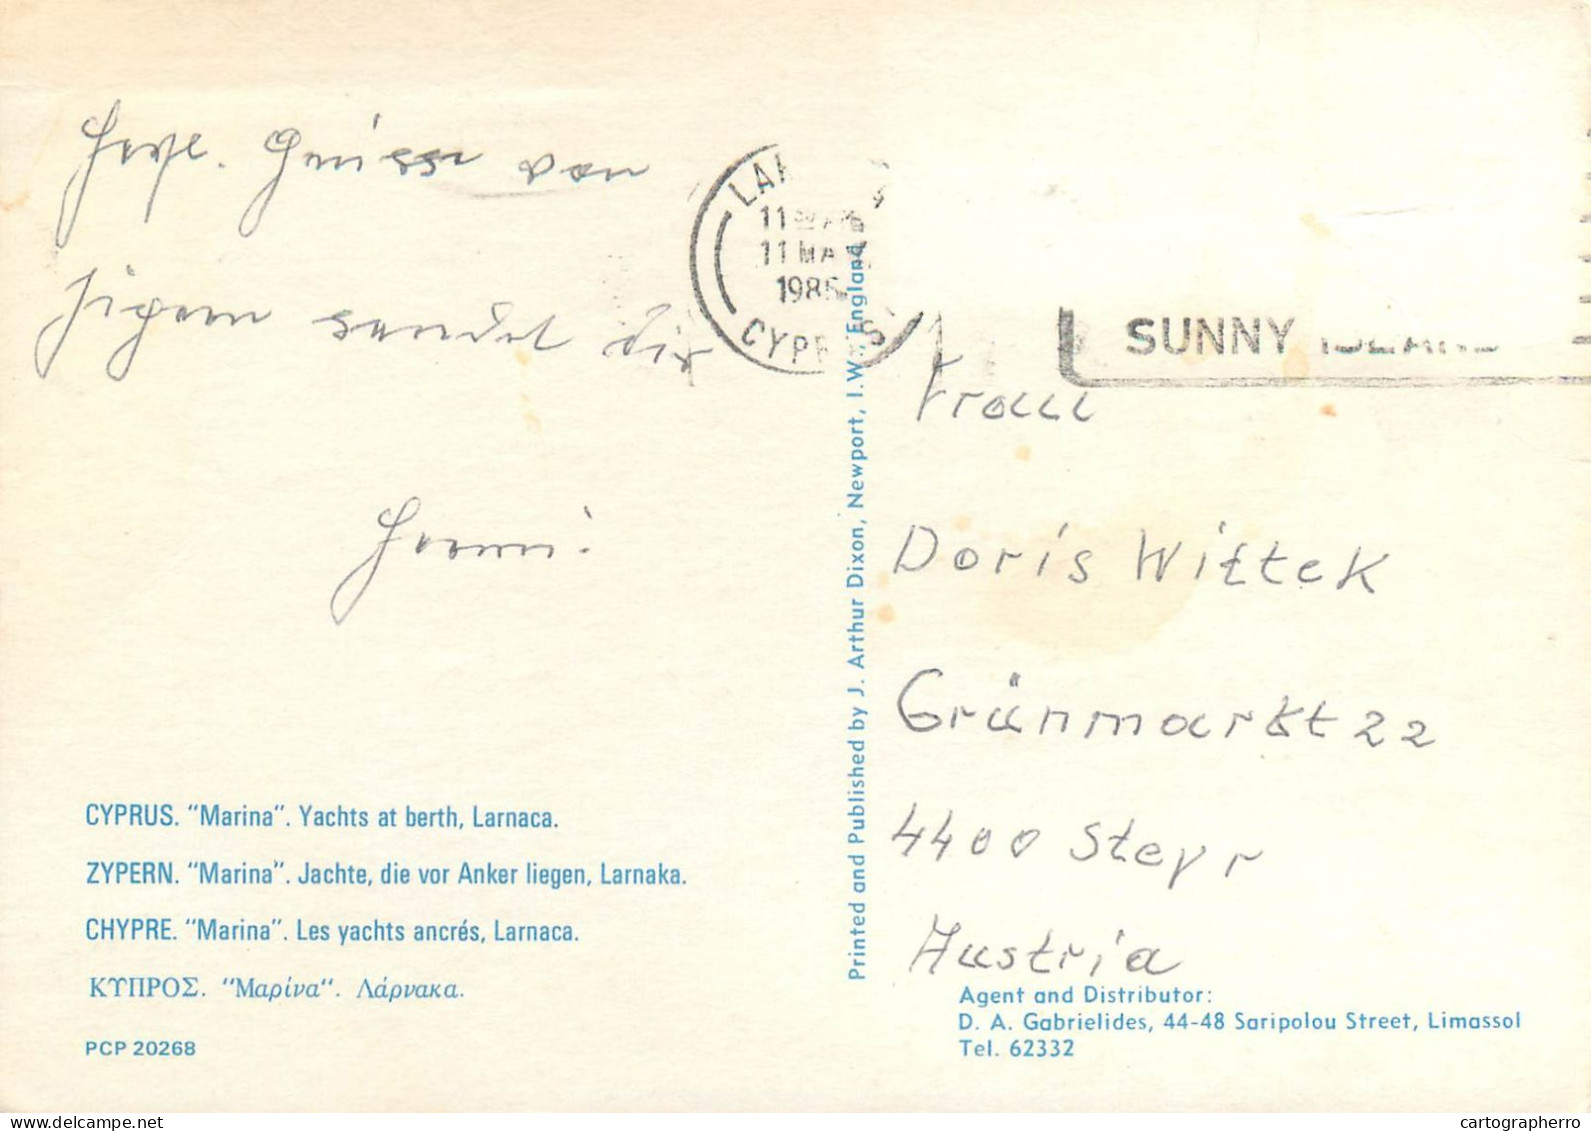 Herzl. Grüsse von
Zipern sendet dir
Hermi!
LAR
11
11 MAY
1985
CYPRUS
SUNNY ISLAND
Frau
Doris Wittek
Grünmarkt 22
4400 Steyr
Austria
CYPRUS. "Marina". Yachts at berth, Larnaca.
ZYPERN. "Marina". Jachte, die vor Anker liegen, Larnaka.
CHYPRE. "Marina". Les yachts ancrés, Larnaca.
ΚΥΠΡΟΣ. "Μαρίνα". Λάρνακα.
PCP 20268
Printed and Published by J. Arthur Dixon, Newport, I.W., England.
Agent and Distributor:
D. A. Gabrielides, 44-48 Saripolou Street, Limassol
Tel. 62332
cartographerro